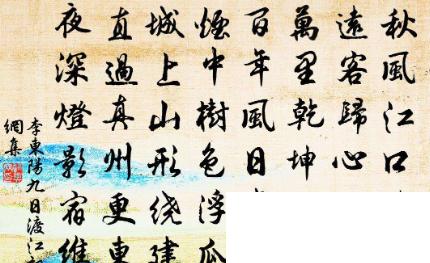 秋風江口
遠客歸心
萬里乾坤
百年風日
煙中樹色浮瓜
城上山形绕建
直過真州更東
夜深燈影宿維
李東陽九日渡江
網集